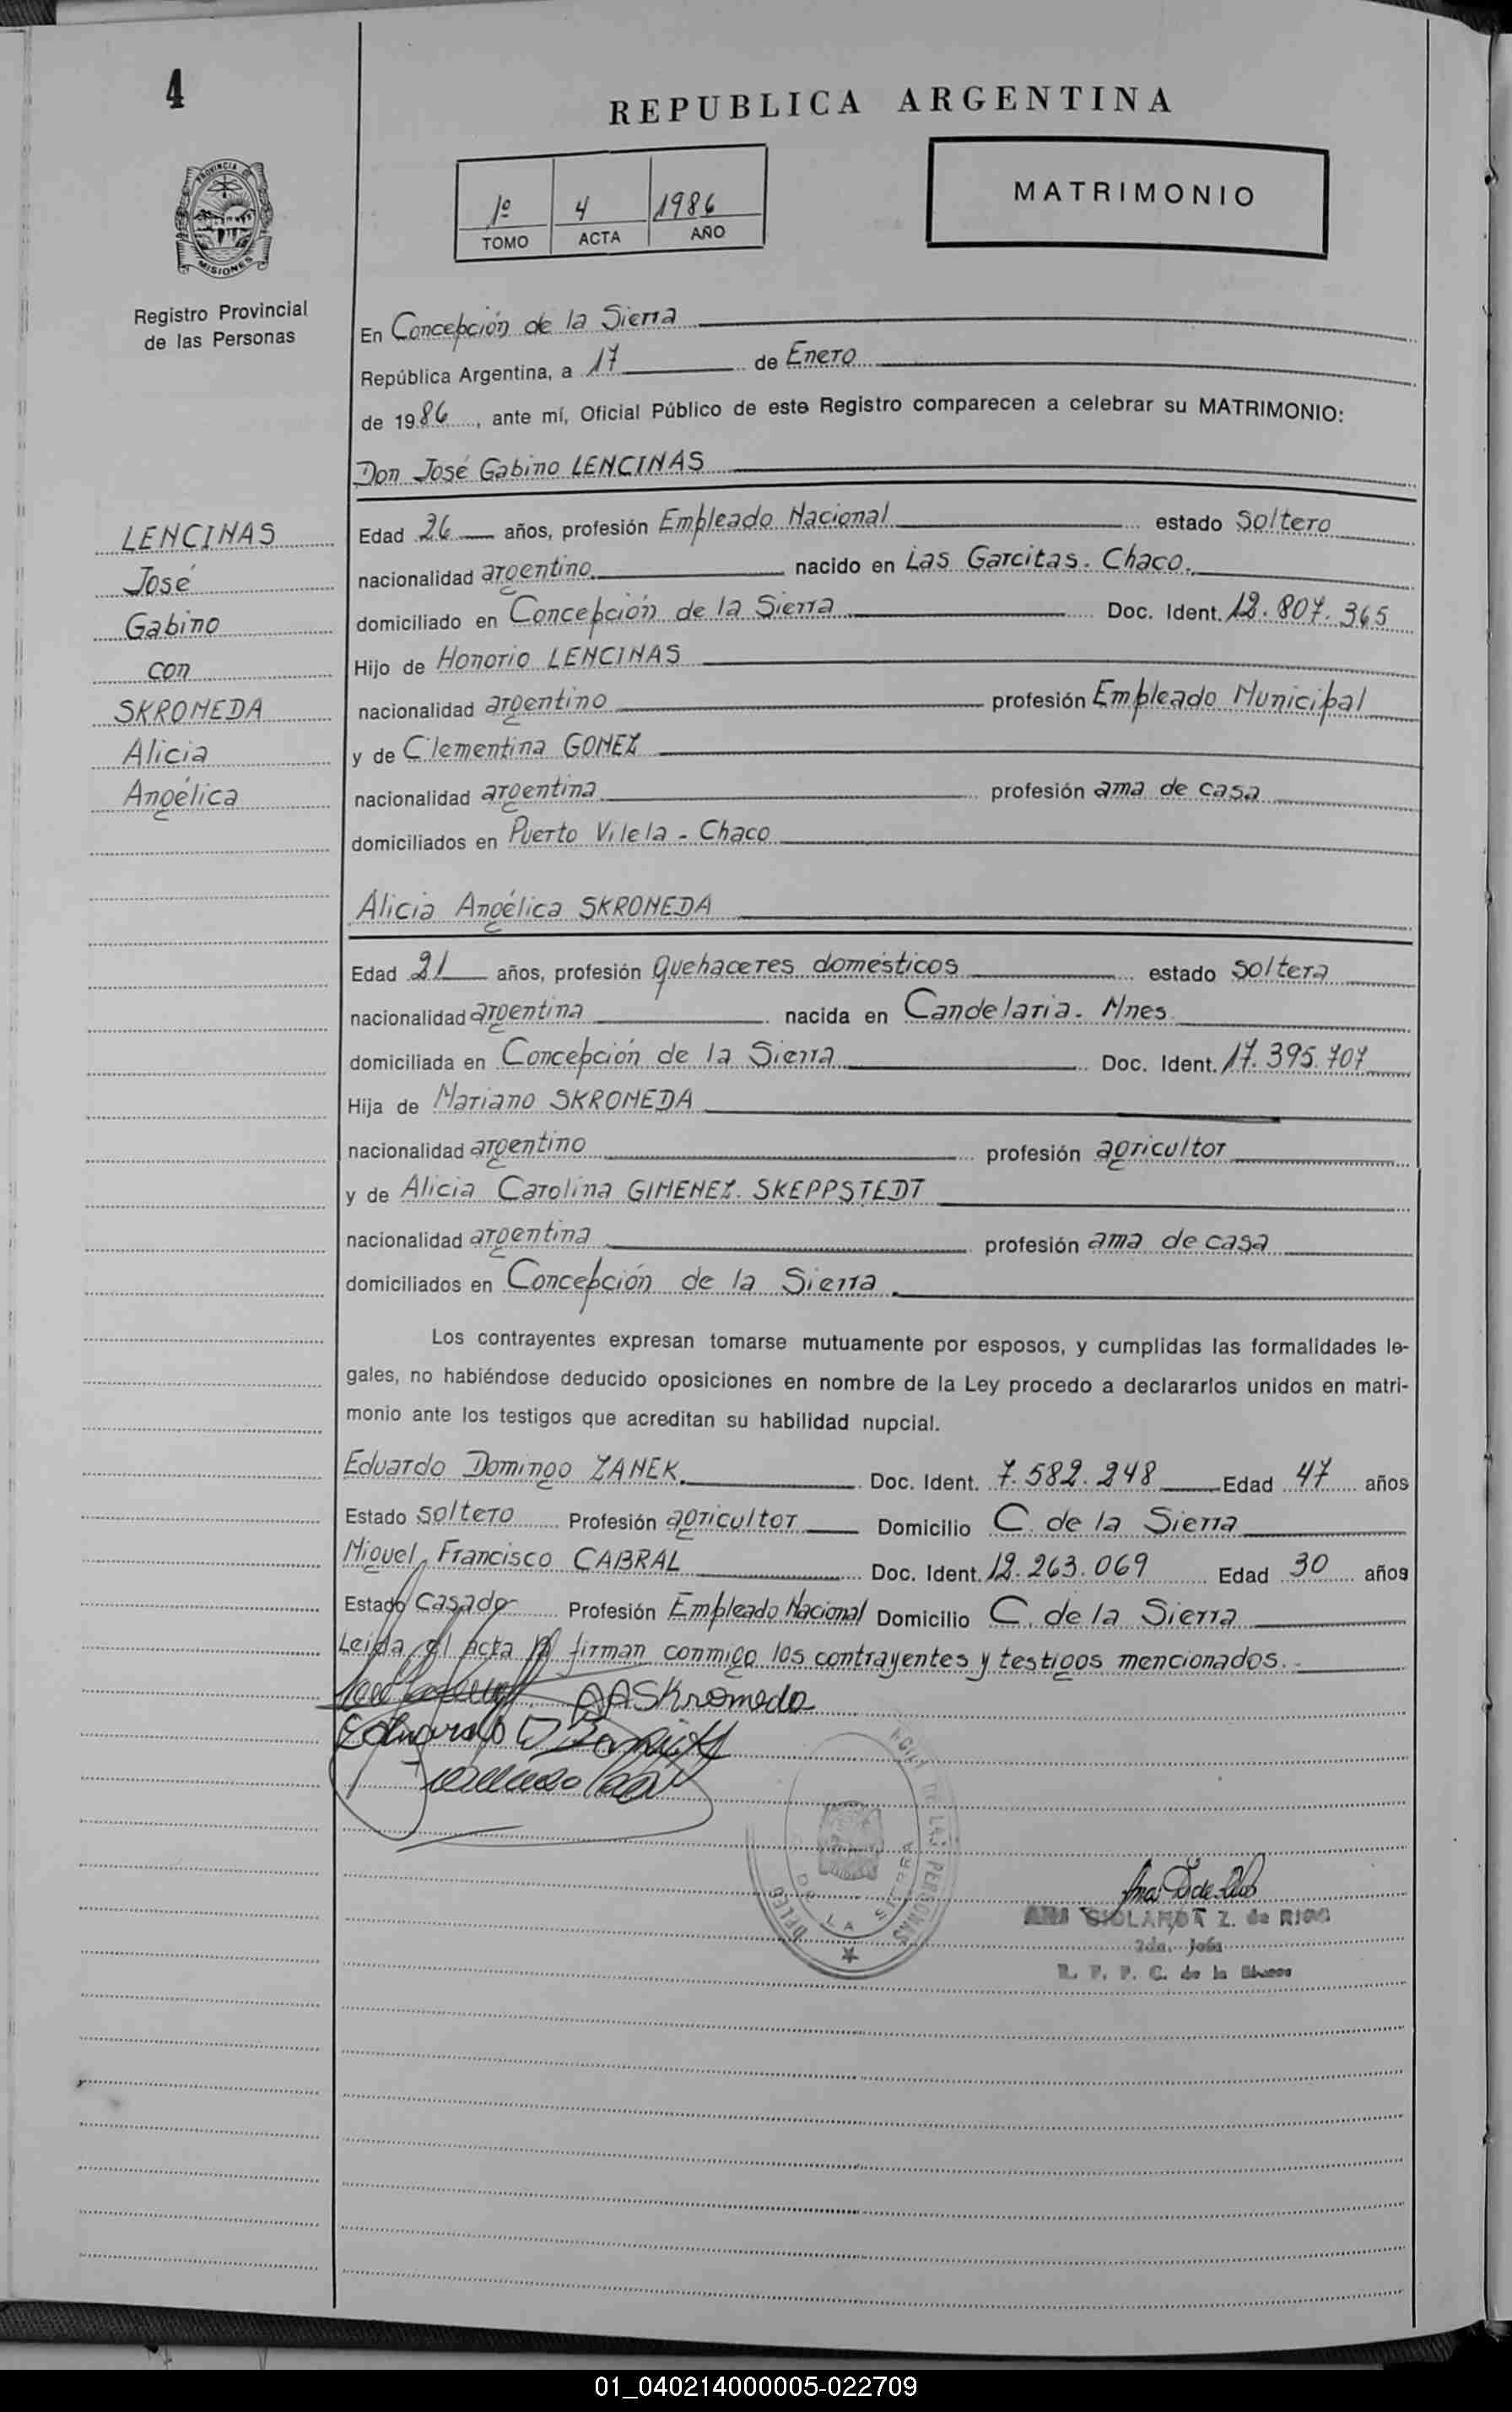 4
REPUBLICA ARGENTINA
PROVINCIA DE
MISIONES
Registro Provincial
de las Personas
1º 4 1986
TOMO ACTA AÑO
MATRIMONIO
En Concepción de la Sierra
República Argentina, a 17 de Enero
de 1986, ante mí, Oficial Público de este Registro comparecen a celebrar su MATRIMONIO:
Don José Gabino LENCINAS
LENCINAS
José
Gabino
con
SKROMEDA
Alicia
Angélica
Edad 26 años, profesión Empleado Nacional estado Soltero
nacionalidad argentino nacido en Las Garcitas. Chaco.
domiciliado en Concepción de la Sierra Doc. Ident. 12.807.365
Hijo de Honorio LENCINAS
nacionalidad argentino profesión Empleado Municipal
y de Clementina GOMEZ
nacionalidad argentina profesión ama de casa
domiciliados en Puerto Vilela - Chaco
Alicia Angélica SKROMEDA
Edad 21 años, profesión quehaceres domésticos estado soltera
nacionalidad argentina nacida en Candelaria. Mnes.
domiciliada en Concepción de la Sierra Doc. Ident. 17.395.707
Hija de Mariano SKROMEDA
nacionalidad argentino profesión agricultor
y de Alicia Carolina GIMENEZ. SKEPPSTEDT
nacionalidad argentina profesión ama de casa
domiciliados en Concepción de la Sierra
Los contrayentes expresan tomarse mutuamente por esposos, y cumplidas las formalidades le-
gales, no habiéndose deducido oposiciones en nombre de la Ley procedo a declararlos unidos en matri-
monio ante los testigos que acreditan su habilidad nupcial.
Eduardo Domingo ZANEK. Doc. Ident. 7.582.248 Edad 47 años
Estado soltero Profesión agricultor Domicilio C. de la Sierra
Miguel Francisco CABRAL Doc. Ident. 12.263.069 Edad 30 años
Estado Casado Profesión Empleado Nacional Domicilio C. de la Sierra
Leída el acta la firman conmigo los contrayentes y testigos mencionados.
AASkromeda
Eduardo D
DE LAS PERSONAS
DELEG
DE LA SIERRA
ANA Z. de
2da. Jefa
R. P. P. C. de la Sierra
01_040214000005-022709